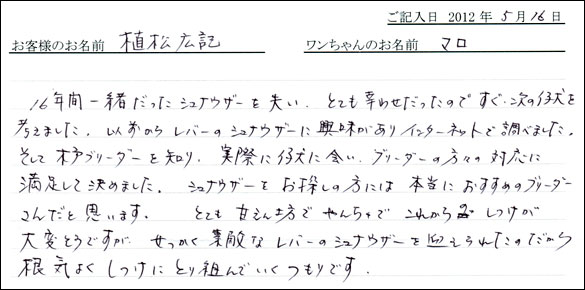 ご記入日 2012年 5月16日
お客様のお名前 植松広記 ワンちゃんのお名前 マロ
16年間一緒だったシュナウザーを失い、とても幸わせだったのですぐ次の仔犬を
考えました。以前からレバーのシュナウザーに興味がありインターネットで調べました。
そして本ブリーダーを知り、実際に仔犬に会い、ブリーダーの方々の対応に
満足して決めました。シュナウザーをお探しの方には本当におすすめのブリーダー
さんだと思います。 とても甘えん坊でやんちゃで これから しつけが
大変そうですが、せっかく素敵なレバーのシュナウザーを迎えられたのだから
根気よくしつけにとり組んでいくつもりです。